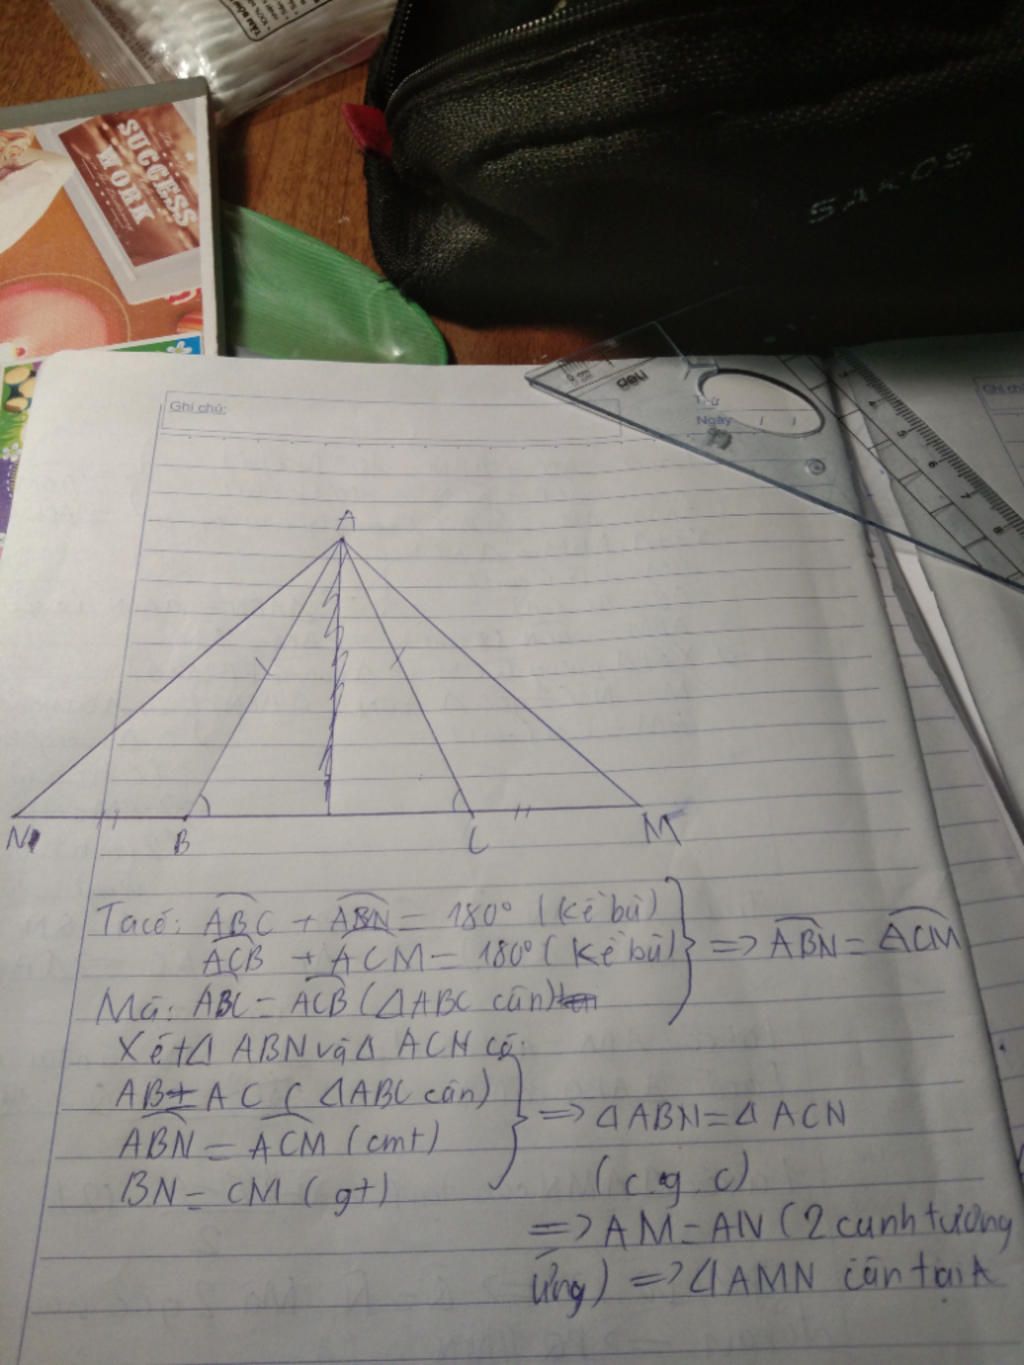 SUCCESS
WORK
SAKOS
Ghi chú:
Thứ
Ngày / /
A
N B C M
Ta có: ABC + ABN = 180° (Kề bù)
ACB + ACM = 180° (Kề bù) => ABN = ACM
Mà: ABC = ACB (Δ ABC cân)
Xét Δ ABN và Δ ACN có:
AB = AC (Δ ABC cân)
=> Δ ABN = Δ ACN
ABN = ACM (cmt)
(c.g.c)
BN = CM (gt)
=> AM = AN (2 cạnh tương
ứng) => Δ AMN cân tại A